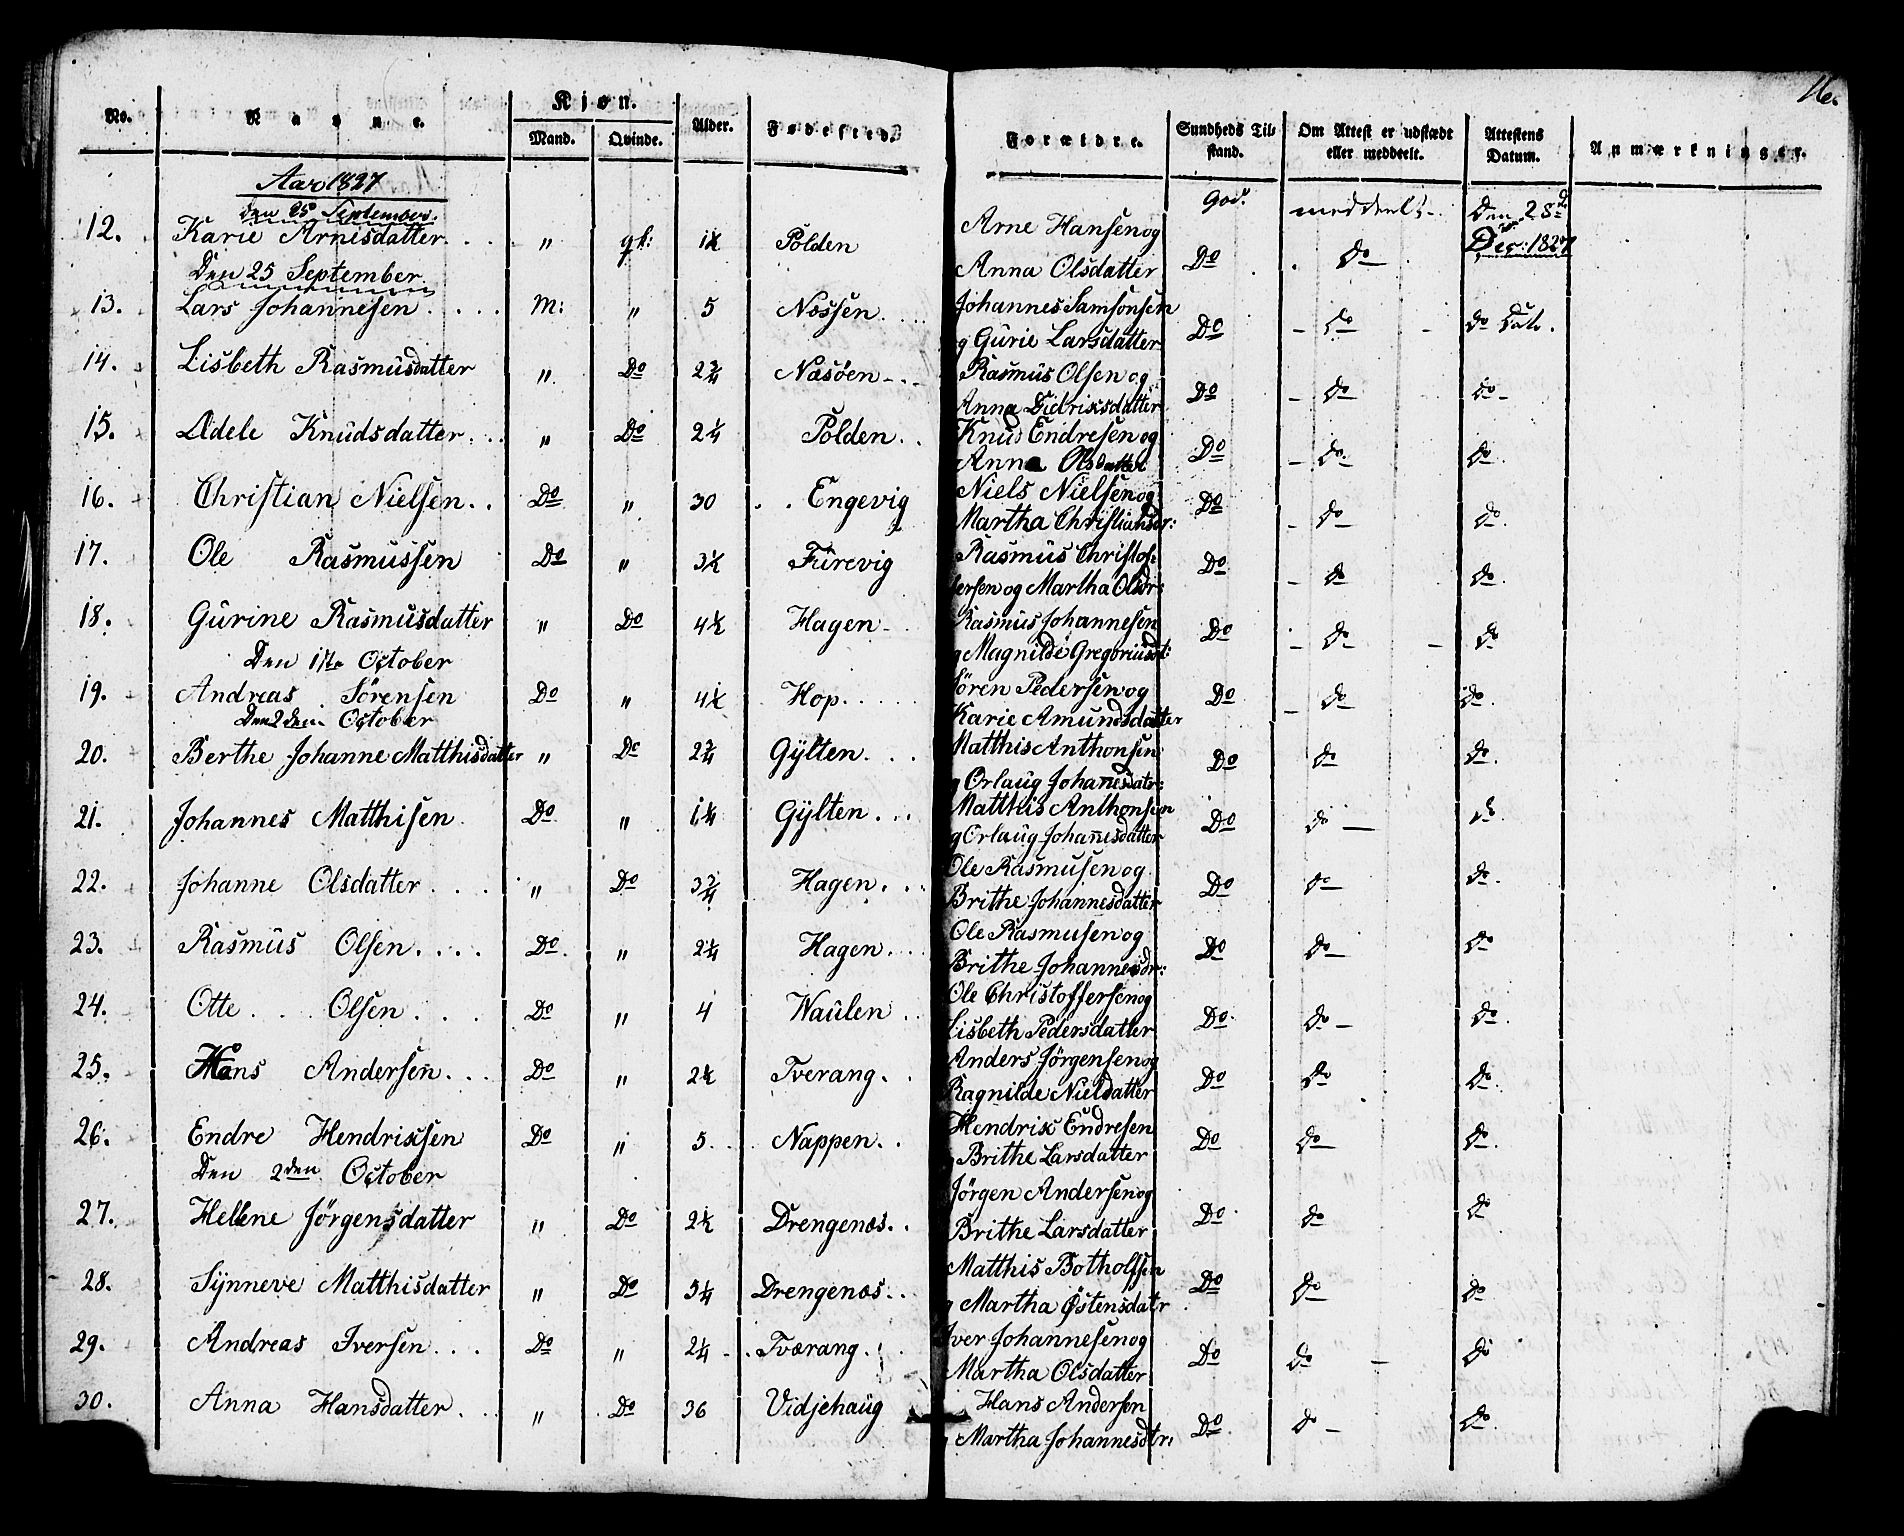 16.
No. Navne. Kjøn. Mand. Qvinde. Alder. Fødested. Forældre. Sundheds Tilstand. Om Attest er udstædt eller meddeelt. Attestens Datum. Anmærkninger.
Aar 1827
den 25 September.
12. Karie Arnisdatter . . . " qk: Pölden Arne Hansen og Anna Olsdatter God. Do meddeelt do Den 28de Dec: 1827
Den 25 September
13. Lars Johannesen . . . . M: " 5 Nössen . . Johannes Samsonsen og Gûrie Larsdatter Do do do Dat.
14. Lisbeth Rasmûsdatter " Do 2 3/4 Næsöen Rasmûs Olsen og Anna Didrixsdatter Do do do
15. Adele Knûdsdatter . . " Do 2 1/4 Pölden . . Knud Endresen og Anna Olsdatter Do do do
16. Christian Nielsen . . Do " 30 Engevig Niels Nielsen og Martha Christiansdr: Do do do
17. Ole Rasmussen Do " 3 1/2 Fûrevig Rasmûs Christoffersen og Martha Olsdr: Do do do
18. Gûrine Rasmûsdatter " Do 4 1/2 Hagen Rasmûs Johannesen og Magnilde Gregoriusdt: Do do do
Den 1ste October
19. Andreas Sörensen Do " 4 1/2 Hop . . . . Sören Pedersen og Karie Amundsdatter Do do do
Den 2den October
20. Berthe Johanne Matthisdatter " Do 2 3/4 Gÿlten . . . Matthis Anthonsen og Orlaug Johanesdatr: Do do do
21. Johannes Matthisen Do " 1 1/4 Gÿlten . . . Matthis Anthonsen og Orlaûg Johanesdatter Do do do
22. Johanne Olsdatter . . . " Do 3 3/4 Hagen . . . Ole Rasmusen og Brithe Johannesdatter Do do do
23. Rasmûs Olsen . . . . Do " 2 1/4 Hagen . . . Ole Rasmusen og Brithe Johannesdr: Do do do
24. Otte . . Olsen . . . Do " 4 Waûlen . . Ole Christoffersen og Lisbeth Pedersdatter Do do do
25. Hans Andersen . . . Do " 2 1/2 Tverang . . Anders Jörgensen og Ragnilde Nielsdatter Do do do
26. Endre Hendrixsen Do " 5 . Nappen . . Hendrix Endresen og Brithe Larsdatter Do do do
Den 2den October
27. Hellene Jörgensdatter " Do 2 1/2 Drengenæs . . Jörgen Andersen og Brithe Larsdatter Do do do
28. Sÿnneve Matthisdatter " Do 3 1/4 Drengenæs . . Matthis Botholfsen og Martha Östensdatr Do do do
29. Andreas Iversen . . . Do " 2 1/4 Tværang . . Iver Johannesen og Martha Olsdatter Do do do
30. Anna Hansdatter . . " Do 36 Vidjehaûg Hans Andersen og Martha Johannesdtr: Do do do